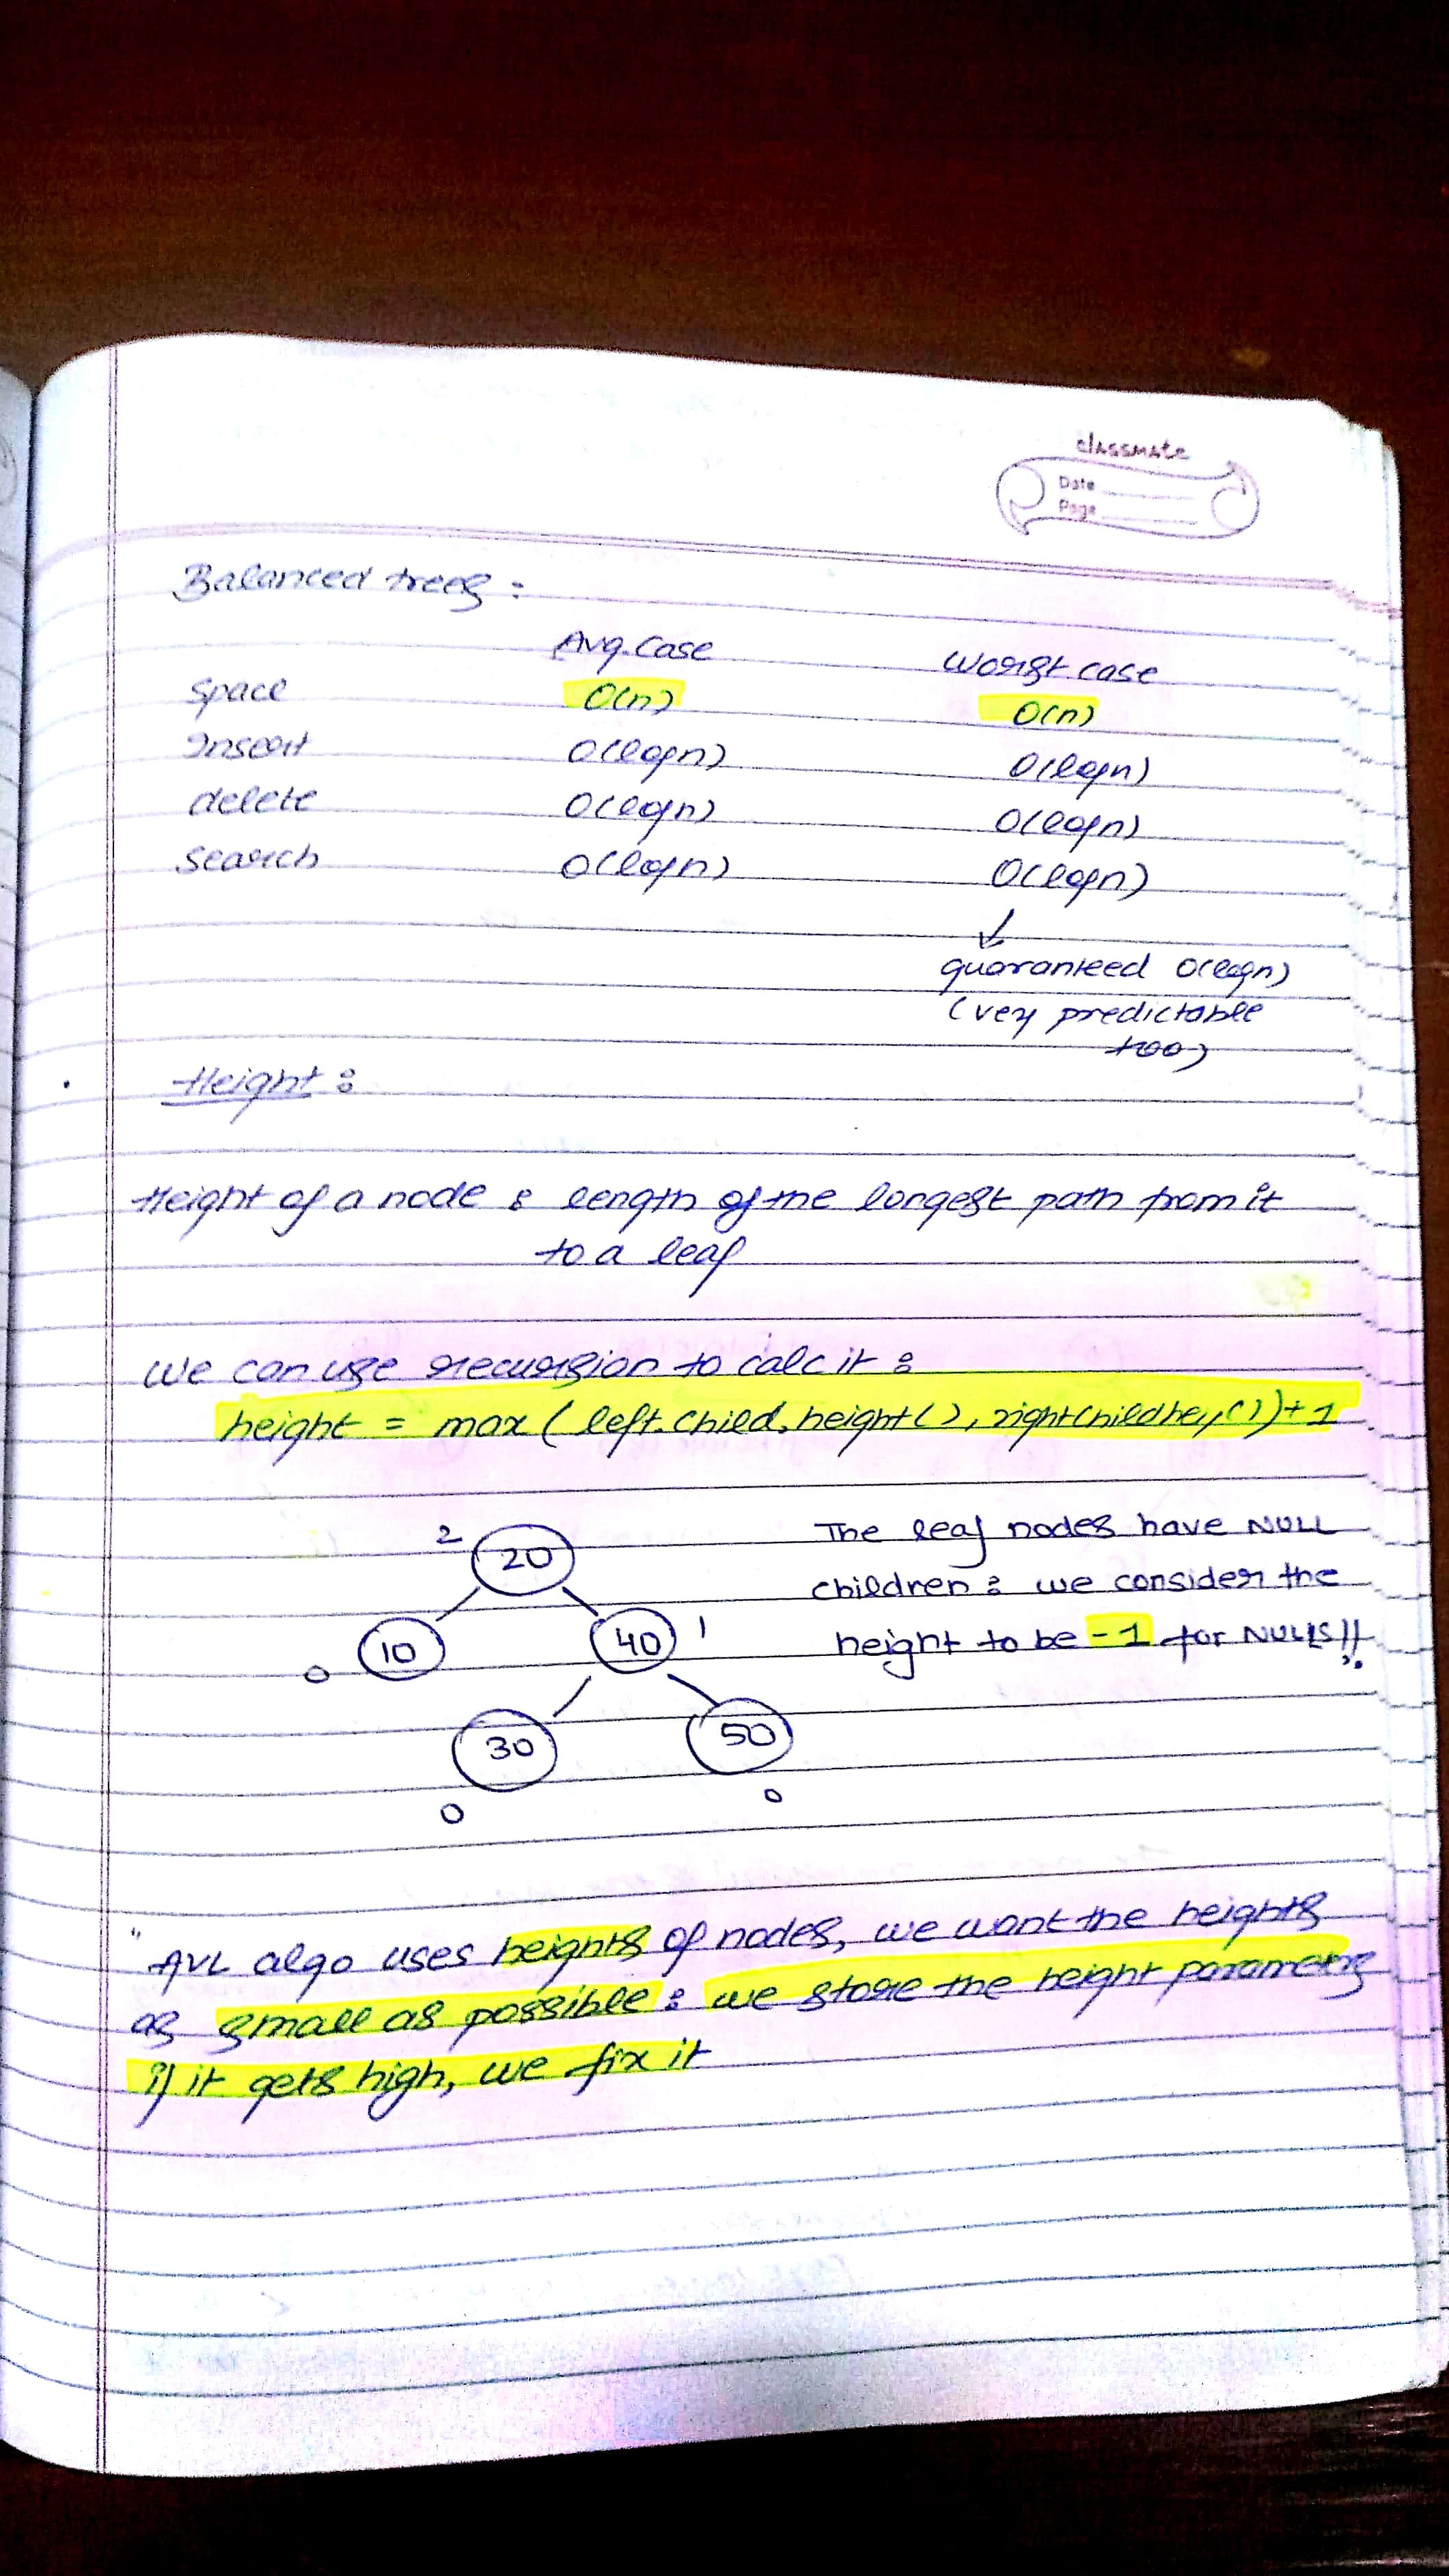 classmate
Date
Page
Balanced trees :
Avg. Case Worst case
Space O(n) O(n)
Insert O(logn) O(logn)
delete O(logn) O(logn)
Search O(logn) O(logn)
guaranteed O(logn)
(very predictable
too)
Height :
Height of a node : length of the longest path from it
to a leaf
We can use recursion to calc it :
height = max ( left.child.height(), rightchildhey())+1
2 20
10 40 1
0
30 50
0 0
The leaf nodes have NULL
children : we consider the
height to be -1 for NULLs!!
"AVL algo uses heights of nodes, we want the heights
as small as possible : we store the height parameters
if it gets high, we fix it